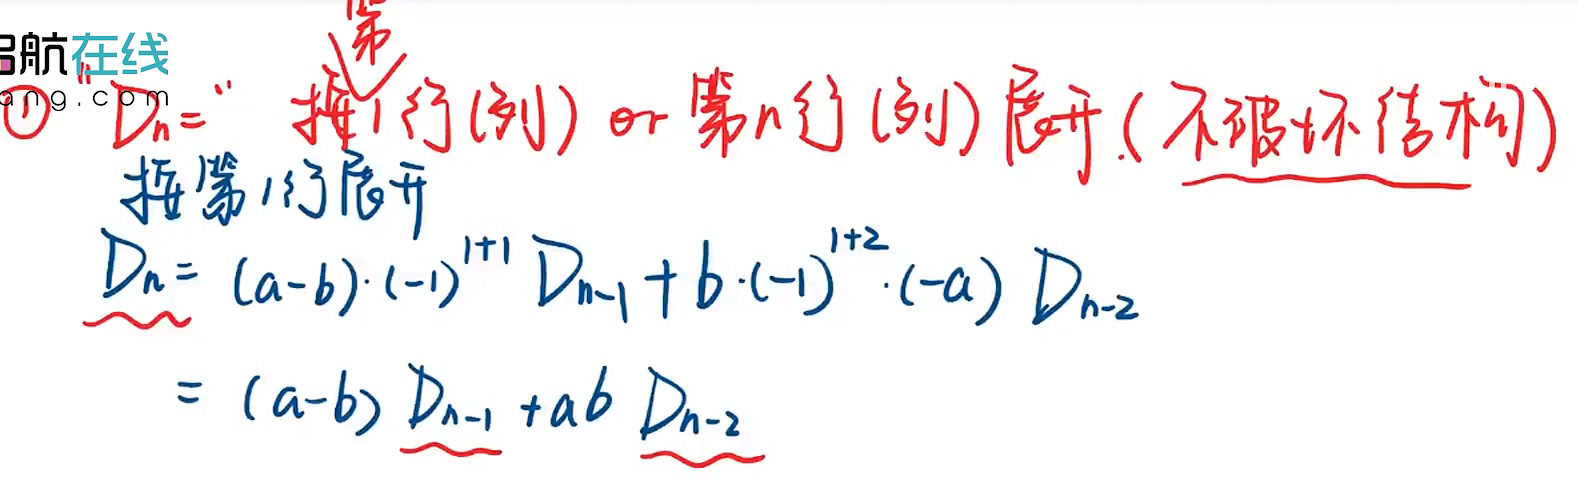 启航在线
ang.com
① "Dn=" 按第1行(列) or 第n行(列)展开.(不破坏结构)
按第1行展开
Dn = (a-b)·(-1)^{1+1} D_{n-1} + b·(-1)^{1+2}·(-a) D_{n-2}
= (a-b) D_{n-1} + ab D_{n-2}